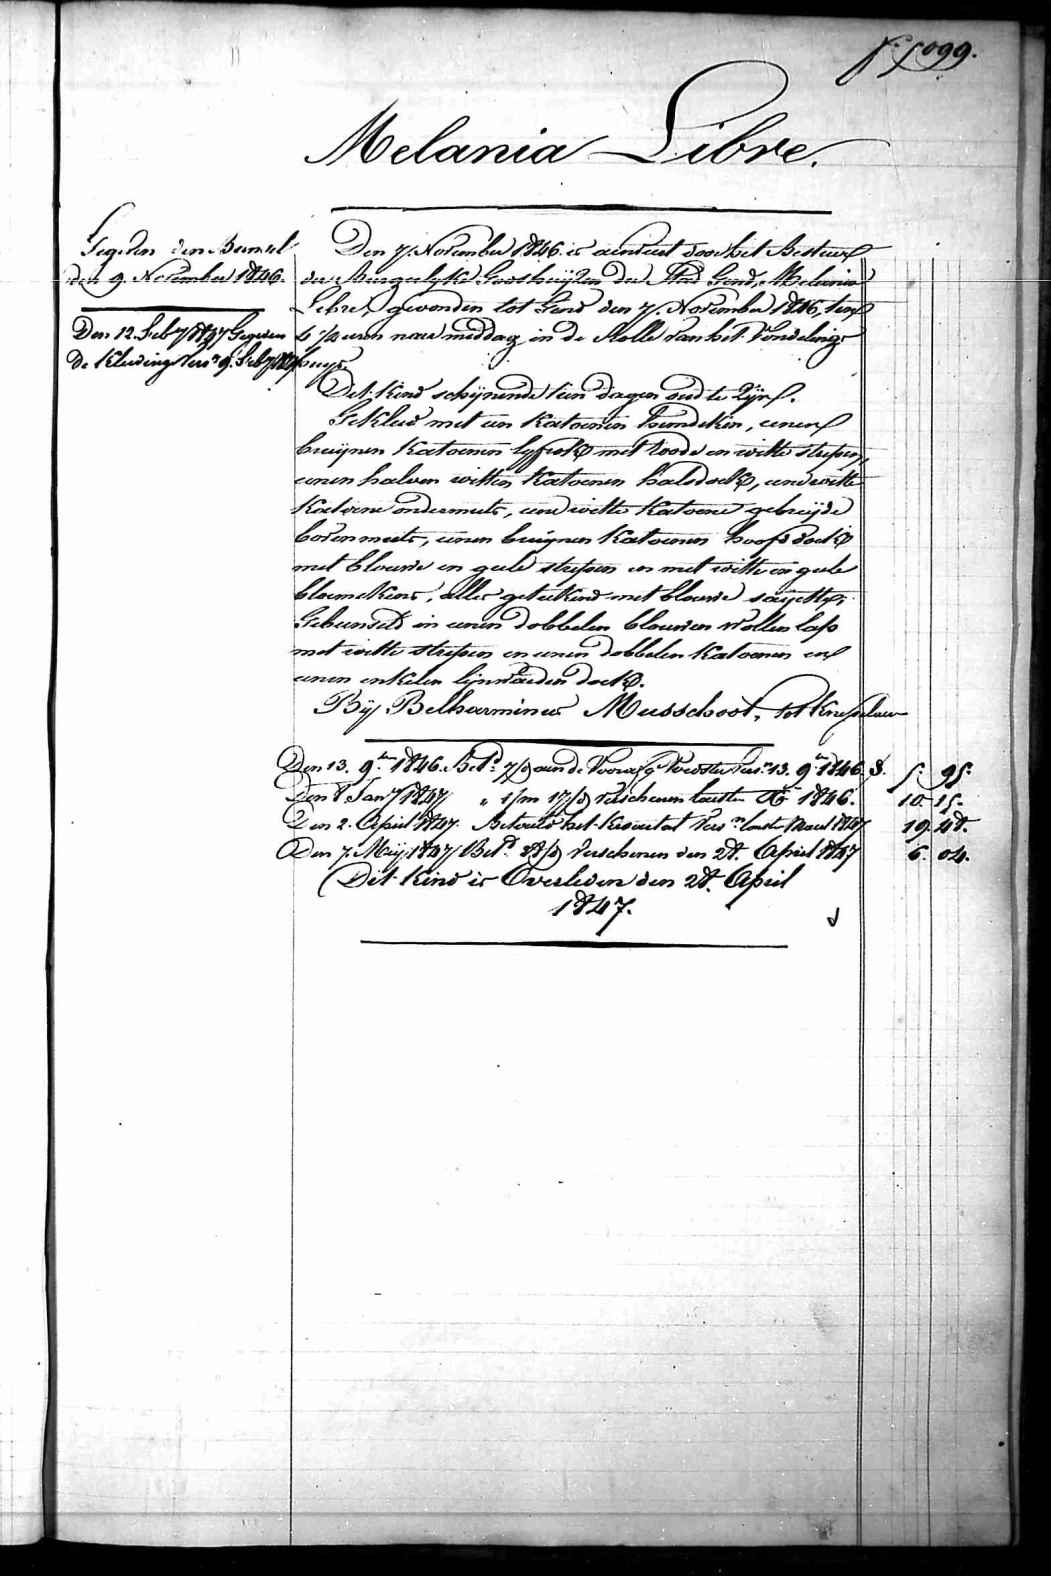 f. 5099.
Melania Libre.
Gegeven den Bunsel
den 9. November 1846.
Den 12. Feb.y 1847 Gegeven
de Kleeding Vers.n 9. Feb.y 1847
Den 7. November 1846. is aenveert door het Bestuer
der Burgerlyke Godshuyzen der Stad Gend, Melania
Libre, gevonden tot Gend den 7. November 1846, ten
6 1/2 uren naer middag, in de Rolle van het Vondeling-
huys.
Dit kind schijnende tien dagen oud te Zijn.
Gekleed met een Katoenen hemdeken, eenen
bruijnen Katoenen lyfrok met roode en witte strepen,
eenen halven witten Katoenen halsdoek, eene witte
Katoene ondermuts, eene witte Katoene gebreijde
bovenmuts, eenen bruijnen Katoenen hoofddoek
met blouwe en geele strepen en met witte en geele
bloemekens, alles geteekend met blouwe saijette,
Gebunseld in eenen dobbelen blouwen wollen lap
met witte strepen en eenen dobbelen Katoenen en
eenen enkelen lijnwaeden doek.
Bij Belharminus Musschoot, tot Knesselaere
Den 13. 9.ber 1846. Bet.d 7/d aen de Voorg. Voedster Vers.n 13. 9.ber 1846. f. 5. 95.
Den 8 Jan.y 1847 " 1/m 17/d verschenen laetsten X.ber 1846. 10. 15.
Den 2. April 1847. Betaeld het Kwartal Vers.n laetste Maert 1847 19. 48.
Den 7. Meij 1847 Bet.d 28/d Verschenen den 28. April 1847 6. 04.
Dit Kind is Overleden den 28. April
1847.